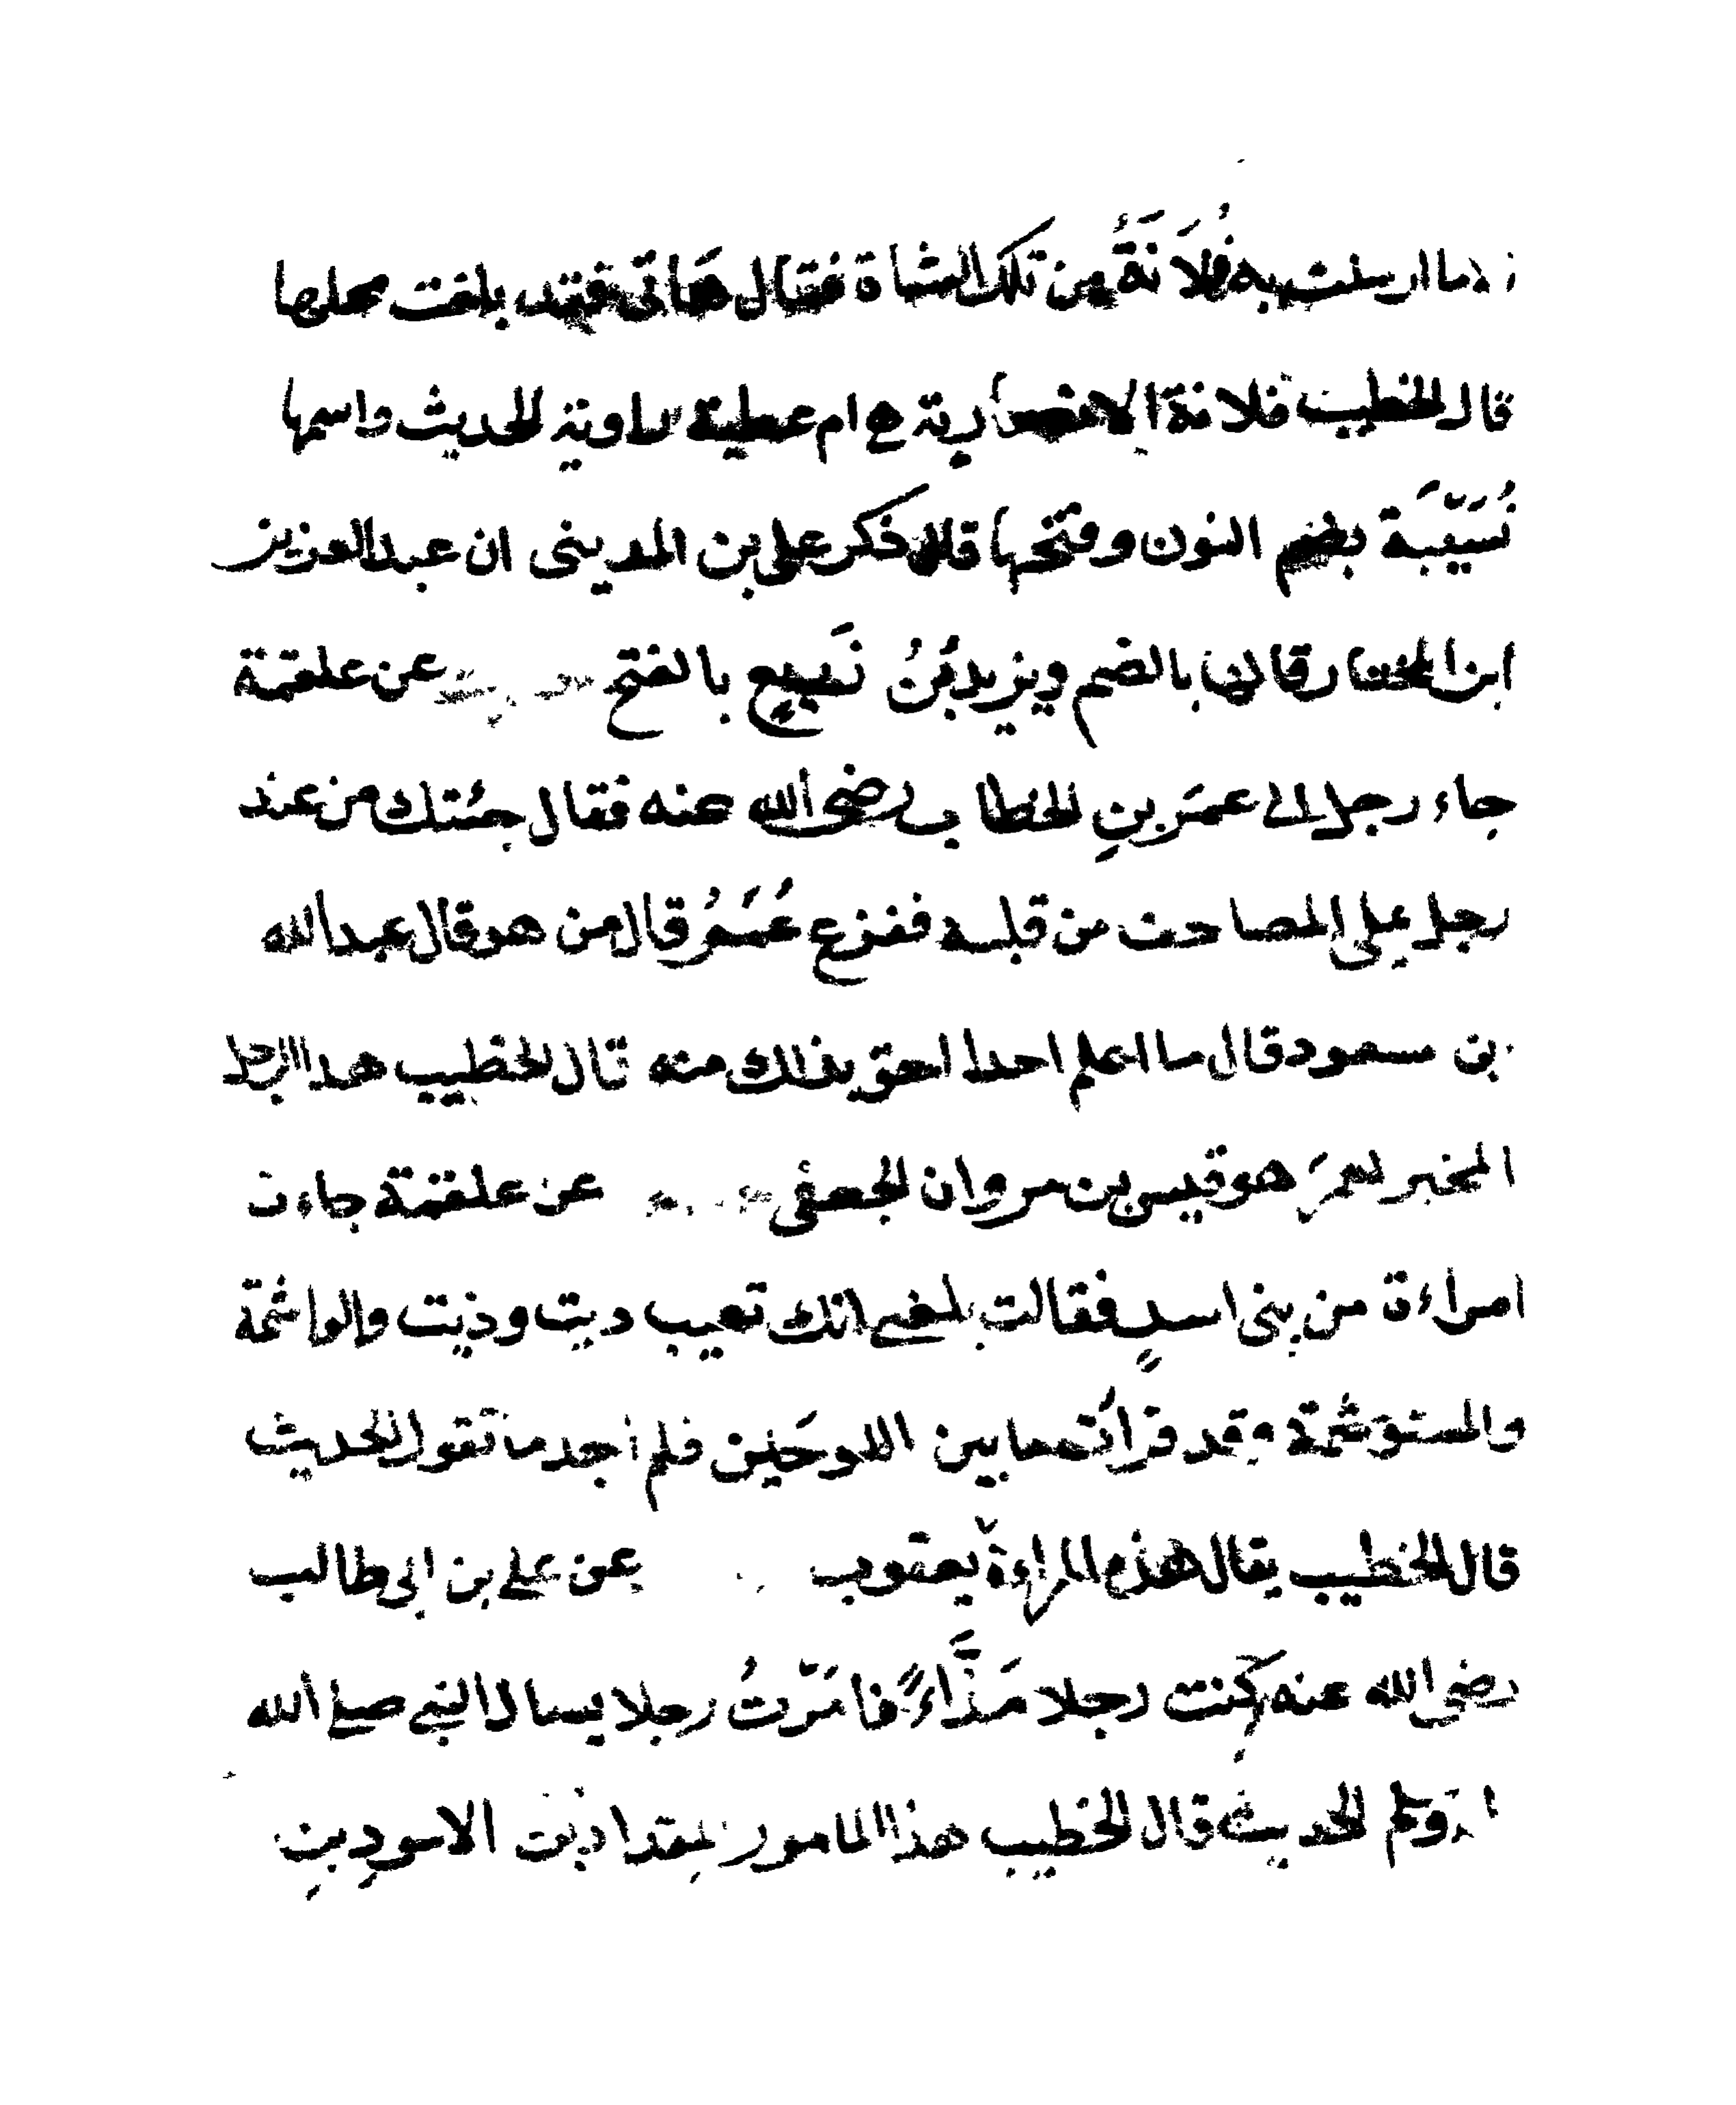 ما ارسلت به فُلاَنَةُ من تلك الشاة فقال هاتي فقد بلغت محلها
قال الخطيب فلانة الانصارية هي ام عطية راوية الحديث واسمها
نُسَيْبَة بضم النون وفتحها قال ذكر علي بن المديني ان عبد العزيز
ابن المختار قالها بالضم ويزيد بْنُ زَريعٍ بالفتح عن علقمة
جاء رجل الى عمَر بنِ الخطاب رضي الله عنه فقال جئتك من عند
رجل يملي المصاحف من قلبه ففزع عُمَرُ قال من هو قال عبد الله
بن مسعود قال ما اعلم احدا احق بذلك منه قال الخطيب هذا الرجل
المخبر لعمرَ هو قيس بن مروان الجعفي عن علقمة جاءت
امراءة من بني اسدٍ فقالت بلغني انك تعيب ذيت وذيت والواشمة
والمستوشمة وقد قرأت ما بين اللوحَين فلم اجد ما تقول الحديث
قال الخطيب يقال هذه المراءة ام يعقوب عن علي بن ابي طالب
رضي الله عنه كنت رجلا مَذَّاءً فامَرْتُ رجلا يسال النبي صلى الله
وسلم الحديث قال الخطيب هذا المامور المقداد بن الاسودِ بنِ